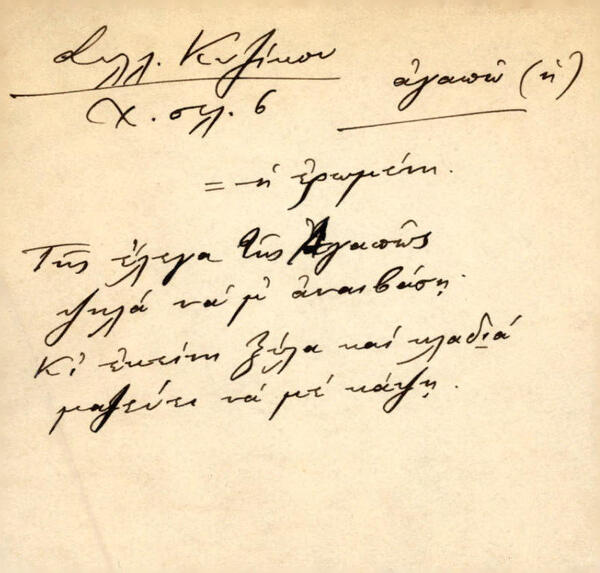 Συλλ. Κυζίκου
Χ. σελ. 6
ἀγαπῶ (ἡ)
= ἡ ἐρωμένη.
Τῆς ἔλεγα τῆς Ἀγαπῶς
ψηλά νά μ' ἀναιβάσῃ
Κι ἐκείνη ξύλα καί κλαδιά
μαζεύει νά μέ κάψῃ.